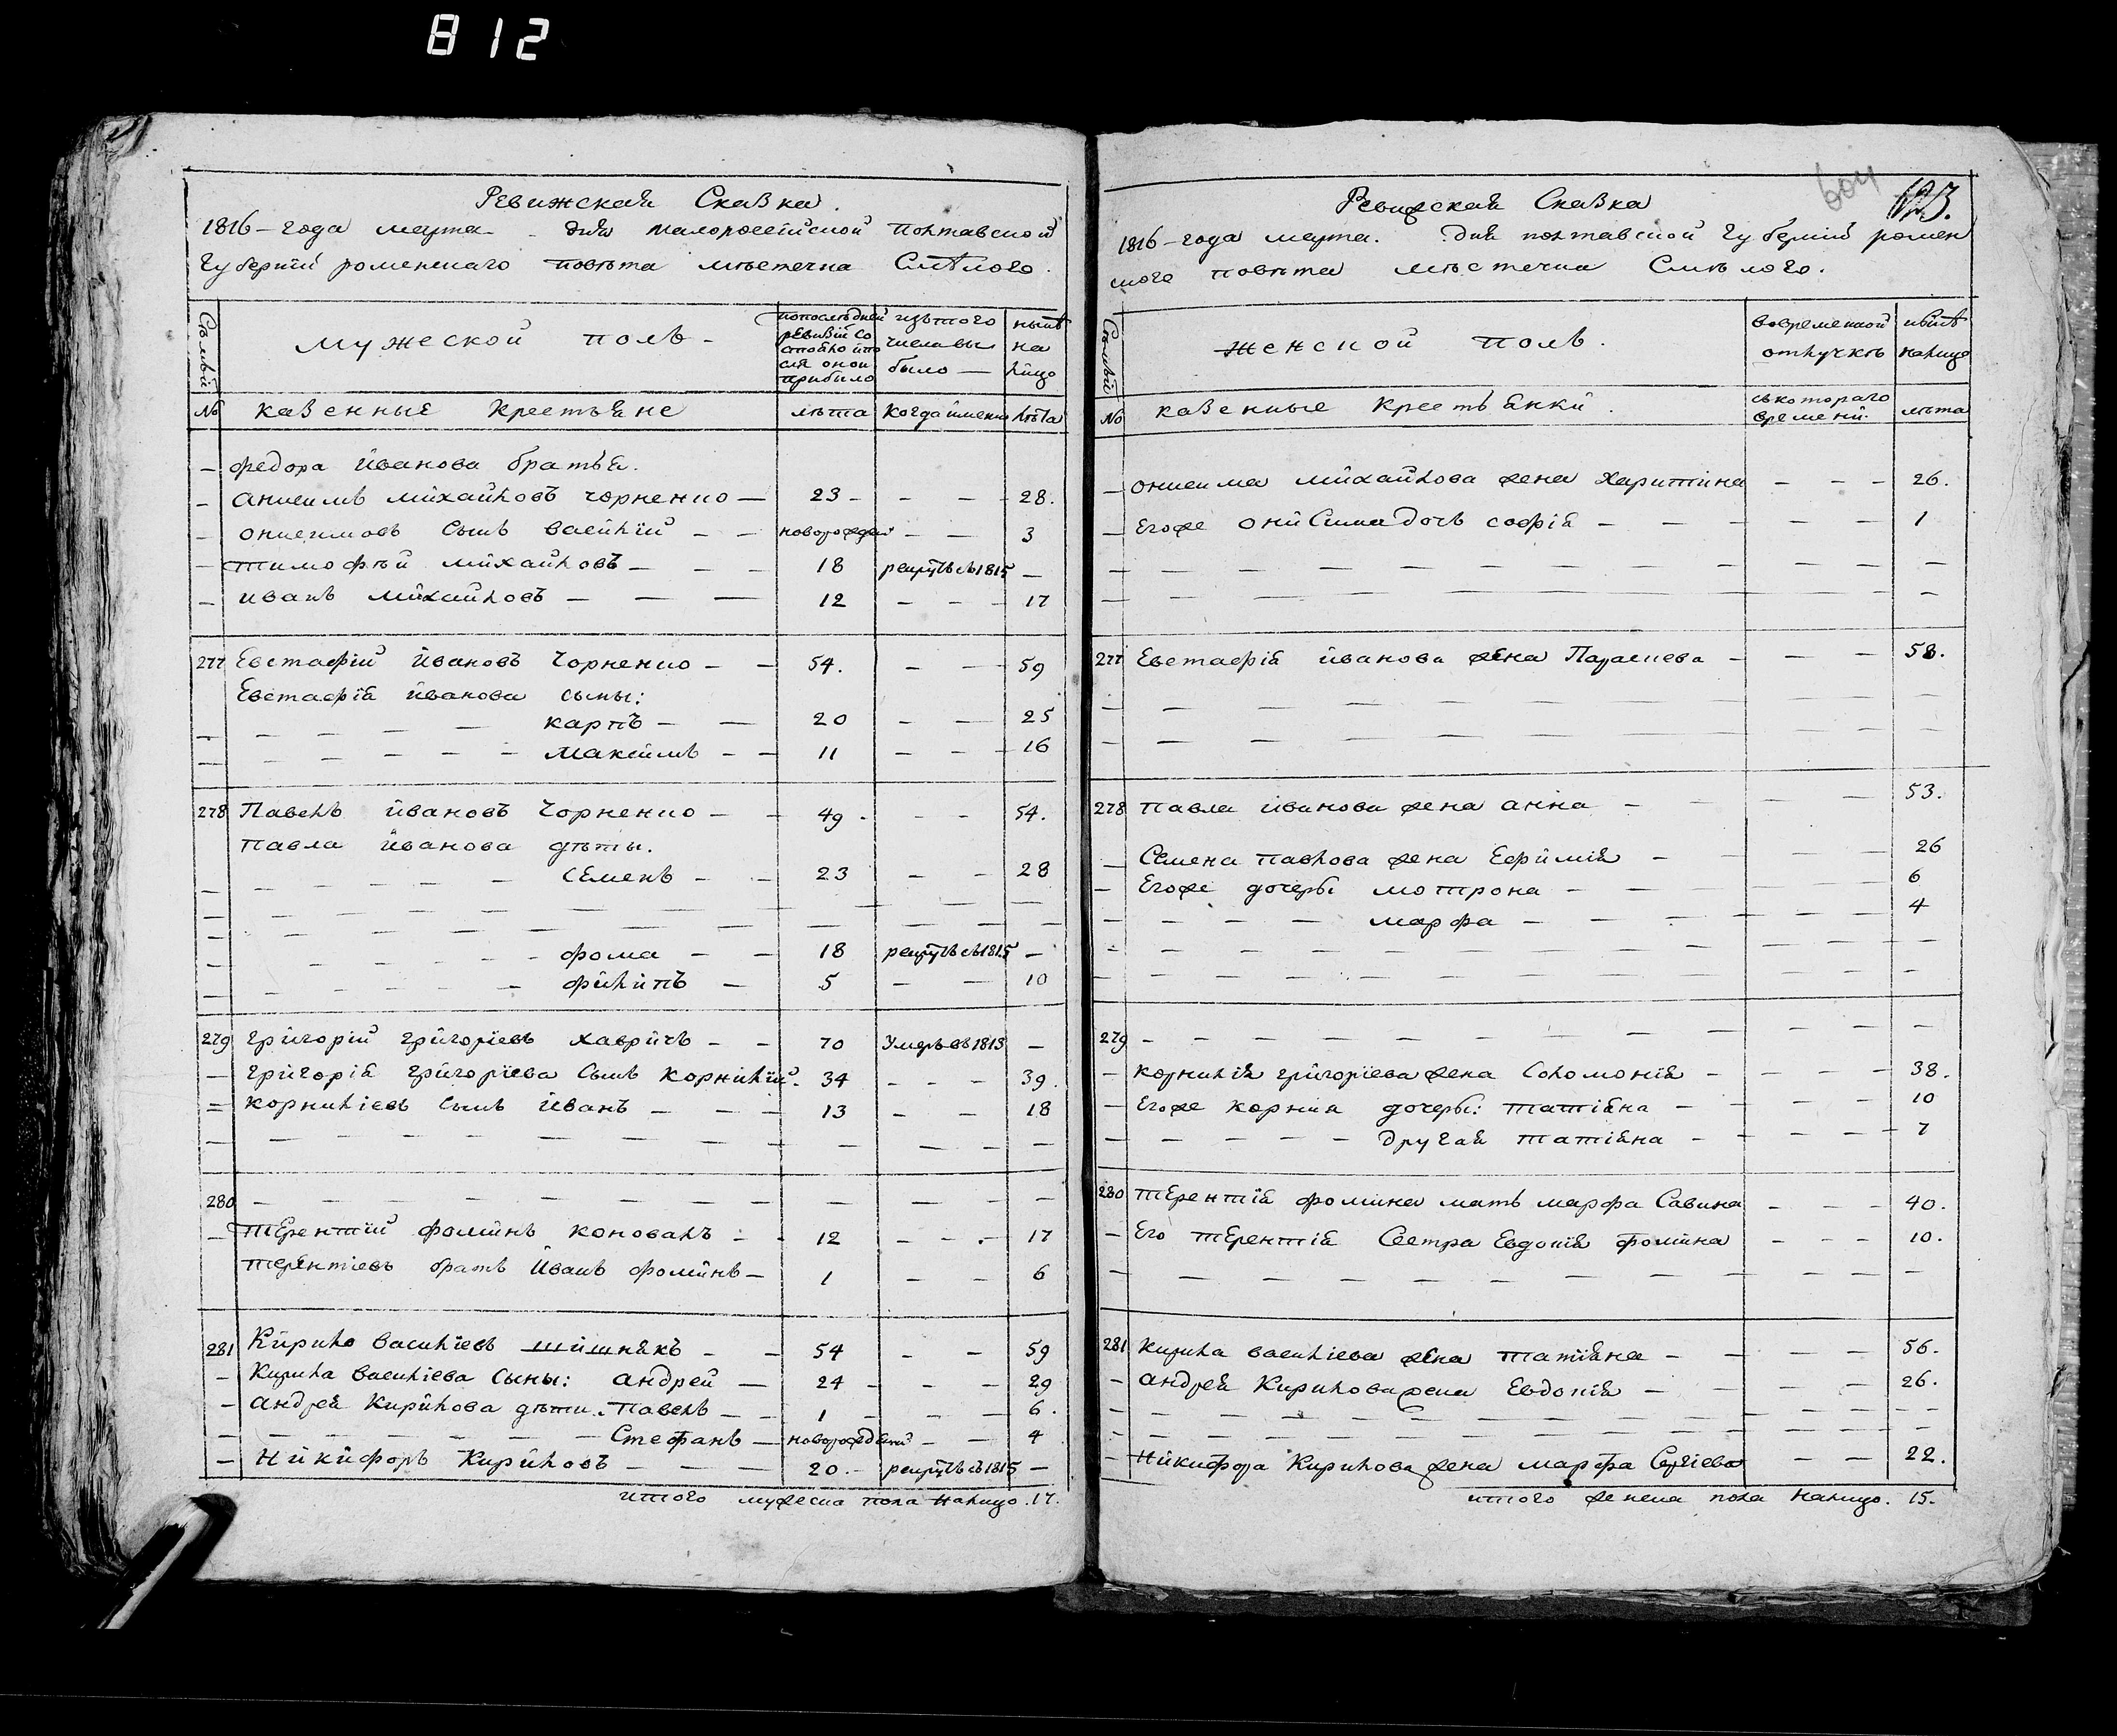 812
Ревижская Сказка.
1816 – года марта – дня малороссійской Полтавской
Губерніи роменскаго повѣта мѣстечка Смѣлого.
Семьи
Мужеской полъ –
попослѣдней ревизіи состояло и послѣ оной прибыло
изъ того числа выбыло –
нынѣ на лицо
№ казенные Крестьяне лѣта когда именно лѣта
– Федора Иванова братья.
– Анисимъ Михайловъ Чорненко – 23 – – – 28.
– Онисимовъ Сынъ Василій – – новорожден – – 3
– Тимофѣй Михайловъ – – – 18 рекрутъ въ 1815 –
– Иванъ Михайловъ – – – 12 – – – 17
277 Евстафій Ивановъ Чорненко – – 54. – – 59
Евстафія Иванова сыны:
– – – – – Карпъ – – 20 – – 25
– – – – – – Максимъ – – 11 – – – 16
278 Павелъ Ивановъ Чорненко – – 49 – – – 54.
Павла Иванова дѣты.
– – – – – – Семенъ – – 23 – – 28
– – – – – – – Фома – – 18 рекрутъ въ 1815 –
– – – – – – – Филипъ – 5 – – 10
279 Григорій Григоріевъ Хавричъ – – 70 Умеръ въ 1813 –
– Григорія Григоріева Сынъ Корнилій – 34 – – – 39.
= Корниліевъ Сынъ Иванъ – – – 13 – – 18
– – – – – – – – – – – –
280 – – – – – – – – – – – –
– Терентій Фоминъ Коновалъ – – 12 – – – 17
Терентіевъ братъ Иванъ Фоминъ – 1 – – 6
281 Кирило Василіевъ Шишнякъ – – 54 – – 59
– Кирила Василіева Сыны: Андрей – 24 – – – 29
– Андрея Кирилова дѣти. Павелъ – – 1 – – – 6.
– – – – – – Стефанъ – новорожденій – – 4
– Никифоръ Кириловъ – – – 20. – рекрутъ въ 1815 –
итого мужеска пола налицо. 17.
Ревижская Сказка
604
123.
1816 – года марта. дня полтавской Губерніи ромен
ского повѣта мѣстечка Смѣлого.
Семьи
Женской полъ.
вовременной отлучкѣ
нынѣ налицо
№ казенные Крестьянки. съкотораго времени. лѣта
– Онисима Михайлова жена Харитина – – – 26.
– Егоже Онисима дочь Софія – – – – – 1
– – – – – – – – – – – –
– – – – – – – – – – – –
277 Евстафія Иванова жена Параскева – – – 58.
– – – – – – – – – – – –
– – – – – – – – – – – –
278 Павла Иванова жена Анна – – – – 53.
– Семена Павлова жена Ефимія – – – – 26
– Егоже дочеры Мотрона – – – – 6
– – – – – Марфа – – – – – – 4
– – – – – – – – – – – –
– – – – – – – – – – – –
279 – – – – – – – – – – – –
– Корнилія Григоріева жена Соломонія – – – – 38.
– Егоже Корнил дочеры: Татіяна – – – – – 10
– – – – – – другая Татіяна – – – – – 7
280 Терентія Фомина мать Марфа Савина – – – 40.
– Его Терентія Сестра Евдокія Фомина – – – 10.
– – – – – – – – – – – –
281 Кирила Василіева жена Татіяна – – – – 56.
– Андрея Кирилова жена Евдокія – – – – 26.
– – – – – – – – – – – –
– – – – – – – – – – – –
– Никифора Кирилова жена Марфа Сергіева – – 22.
итого женска пола налицо. 15.